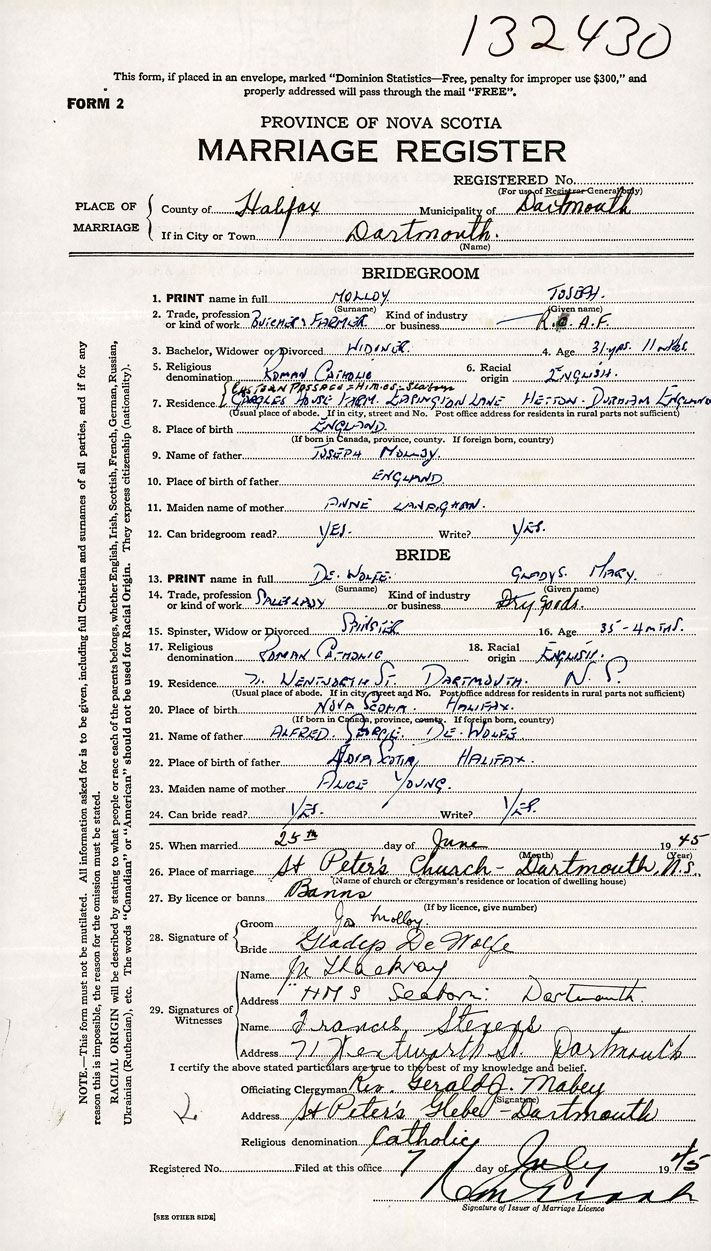 132430
This form, if placed in an envelope, marked "Dominion Statistics—Free, penalty for improper use $300," and
properly addressed will pass through the mail "FREE".
FORM 2
PROVINCE OF NOVA SCOTIA
MARRIAGE REGISTER
REGISTERED No.
(For use of Registrar General only)
PLACE OF MARRIAGE
County of Halifax Municipality of Dartmouth
If in City or Town Dartmouth.
(Name)
BRIDEGROOM
1. PRINT name in full MOLLOY JOSEPH.
(Surname) (Given name)
2. Trade, profession or kind of work BUTCHER & FARMER Kind of industry or business R. A.F.
3. Bachelor, Widower or Divorced WIDOWER. 4. Age 31 yrs. 11
5. Religious denomination ROMAN CATHOLIC 6. Racial origin ENGLISH.
EASTERN PASSAGE = H.M.C.S. = Seaborn
7. Residence HOUSE FARM. EASINGTON LANE HETTON-DURHAM ENGLAND
(Usual place of abode. If in city, street and No. Post office address for residents in rural parts not sufficient)
8. Place of birth ENGLAND.
(If born in Canada, province, county. If foreign born, country)
9. Name of father JOSEPH MOLLOY.
10. Place of birth of father ENGLAND.
11. Maiden name of mother ANNE
12. Can bridegroom read? YES. Write? YES.
BRIDE
13. PRINT name in full DE. WOLFE. GLADYS. MARY.
(Surname) (Given name)
14. Trade, profession or kind of work SALESLADY Kind of industry or business Dry goods.
15. Spinster, Widow or Divorced SPINSTER 16. Age 35 - 4 mths.
17. Religious denomination ROMAN CATHOLIC 18. Racial origin ENGLISH.
19. Residence 71. WENTWORTH ST. DARTMOUTH. N. S.
(Usual place of abode. If in city, street and No. Post office address for residents in rural parts not sufficient)
20. Place of birth NOVA SCOTIA. HALIFAX.
(If born in Canada, province, county. If foreign born, country)
21. Name of father ALFRED. GEORGE. DE. WOLFE
22. Place of birth of father NOVA SCOTIA HALIFAX.
23. Maiden name of mother ALICE YOUNG.
24. Can bride read? YES. Write? YES.
25. When married 25th day of June 1945
(Month) (Year)
26. Place of marriage St Peter's Church - Dartmouth, N.S.
(Name of church or clergyman's residence or location of dwelling house)
27. By licence or banns Banns
(If by licence, give number)
28. Signature of Groom Jos Molloy.
Bride Gladys De Wolfe
29. Signatures of Witnesses
Name Thackray
Address HMS Seaborn: Dartmouth.
Name Francis Stevens
Address 71 Wentworth St. Dartmouth
I certify the above stated particulars are true to the best of my knowledge and belief.
Officiating Clergyman Rev. Gerald J. Mabey
(Signature)
Address St Peter's Glebe - Dartmouth
Religious denomination Catholic
Registered No. Filed at this office 7 day of July 1945
Signature of Issuer of Marriage Licence
[SEE OTHER SIDE]
NOTE.—This form must not be mutilated. All information asked for is to be given, including full Christian and surnames of all parties, and if for any
reason this is impossible, the reason for the omission must be stated.
RACIAL ORIGIN will be described by stating to what people or race each of the parents belongs, whether English, Irish, Scottish, French, German, Russian,
Ukrainian (Ruthenian), etc. The words "Canadian" or "American" should not be used for Racial Origin. They express citizenship (nationality).